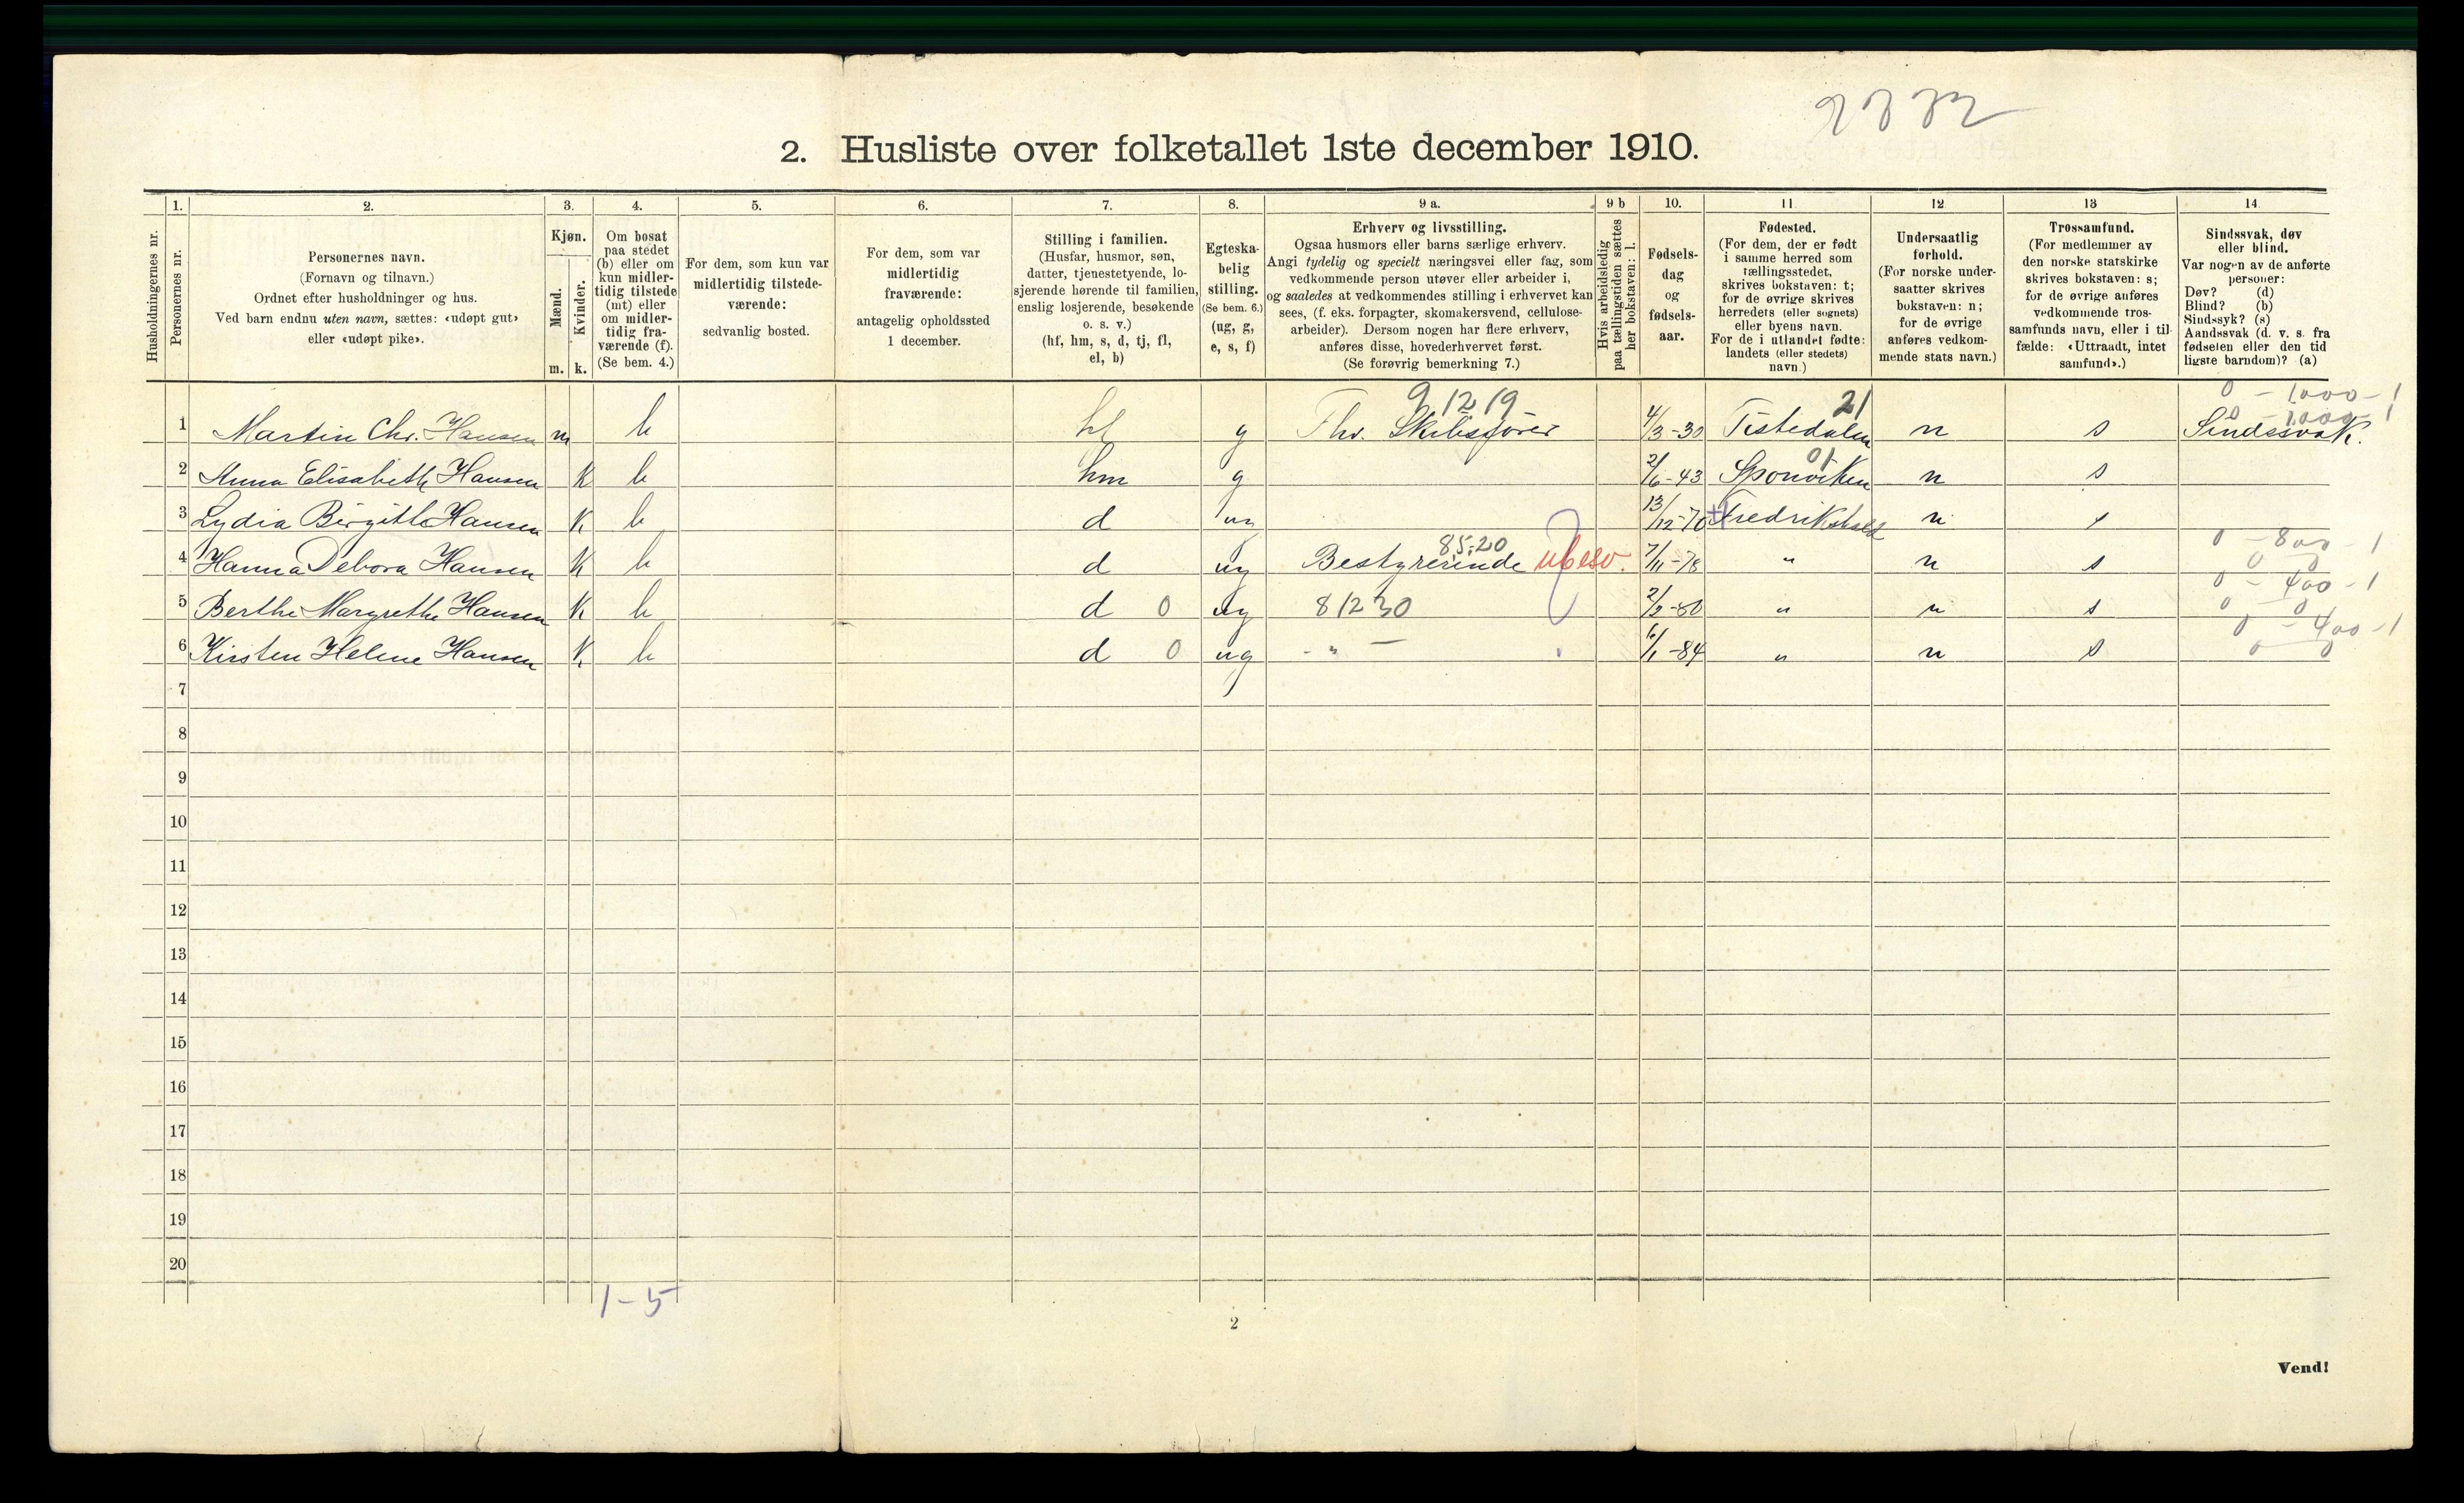 2. Husliste over folketallet 1ste december 1910.
Husholdningernes nr.
1.
Personernes nr.
2.
Personernes navn.
(Fornavn og tilnavn.)
Ordnet efter husholdninger og hus.
Ved barn endnu uten navn, sættes: «udøpt gut»
eller «udøpt pike».
3.
Kjøn.
Mænd.
Kvinder.
m. k.
4.
Om bosat
paa stedet
(b) eller om
kun midler-
tidig tilstede
(mt) eller
om midler-
tidig fra-
værende (f).
(Se bem. 4.)
5.
For dem, som kun var
midlertidig tilstede-
værende:
sedvanlig bosted.
6.
For dem, som var
midlertidig
fraværende:
antagelig opholdssted
1 december.
7.
Stilling i familien.
(Husfar, husmor, søn,
datter, tjenestetyende, lo-
sjerende hørende til familien,
enslig losjerende, besøkende
o. s. v.)
(hf, hm, s, d, tj, fl,
el, b)
8.
Egteska-
belig
stilling.
(Se bem. 6.)
(ug, g,
e, s, f)
9 a.
Erhverv og livsstilling.
Ogsaa husmors eller barns særlige erhverv.
Angi tydelig og specielt næringsvei eller fag, som
vedkommende person utøver eller arbeider i,
og saaledes at vedkommendes stilling i erhvervet kan
sees, (f. eks. forpagter, skomakersvend, cellulose-
arbeider). Dersom nogen har flere erhverv,
anføres disse, hovederhvervet først.
(Se forøvrig bemerkning 7.)
9 b
Hvis arbeidsledig
paa tællingstiden sættes
her bokstaven: l.
10.
Fødsels-
dag
og
fødsels-
aar.
11
Fødested.
(For dem, der er født
i samme herred som
tællingsstedet,
skrives bokstaven: t;
for de øvrige skrives
herredets (eller sognets)
eller byens navn.
For de i utlandet fødte:
landets (eller stedets)
navn.)
12
Undersaatlig
forhold.
(For norske under-
saatter skrives
bokstaven: n;
for de øvrige
anføres vedkom-
mende stats navn.)
13
Trossamfund.
(For medlemmer av
den norske statskirke
skrives bokstaven: s;
for de øvrige anføres
vedkommende tros-
samfunds navn, eller i til-
fælde: «Uttraadt, intet
samfund».)
14
Sindssvak, døv
eller blind.
Var nogen av de anførte
personer:
Døv? (d)
Blind? (b)
Sindssyk? (s)
Aandssvak (d. v. s. fra
fødselen eller den tid-
ligste barndom)? (a)
9 12 19 21 0 - 1000 - 1
1 Martin Chr. Hansen m b hf g Fhv. Skibsfører 4/3-30 Tistedalen n s Sindssvak.
01
2 Anna Elisabeth Hansen k b hm g 2/6-43 Sponviken n s
3 Lydia Birgitte Hansen k b d ug 13/12-70 Fredrikshald n s
85.20 0 - 800 - 1
4 Hanna Debora Hansen k b d ug Bestyrerinde ubesv. 7/11-78 " n s 0 0
0 - 400 - 1
5 Berthe Margrethe Hansen k b d 0 ug 81230 2/2-80 " n s 0 0
0 - 400 - 1
6 Kirsten Helene Hansen k b d 0 ug - " - 6/1-84 " n s 0 0
7
8
9
10
11
12
13
14
15
16
17
18
19
20
1-5
2
Vend!